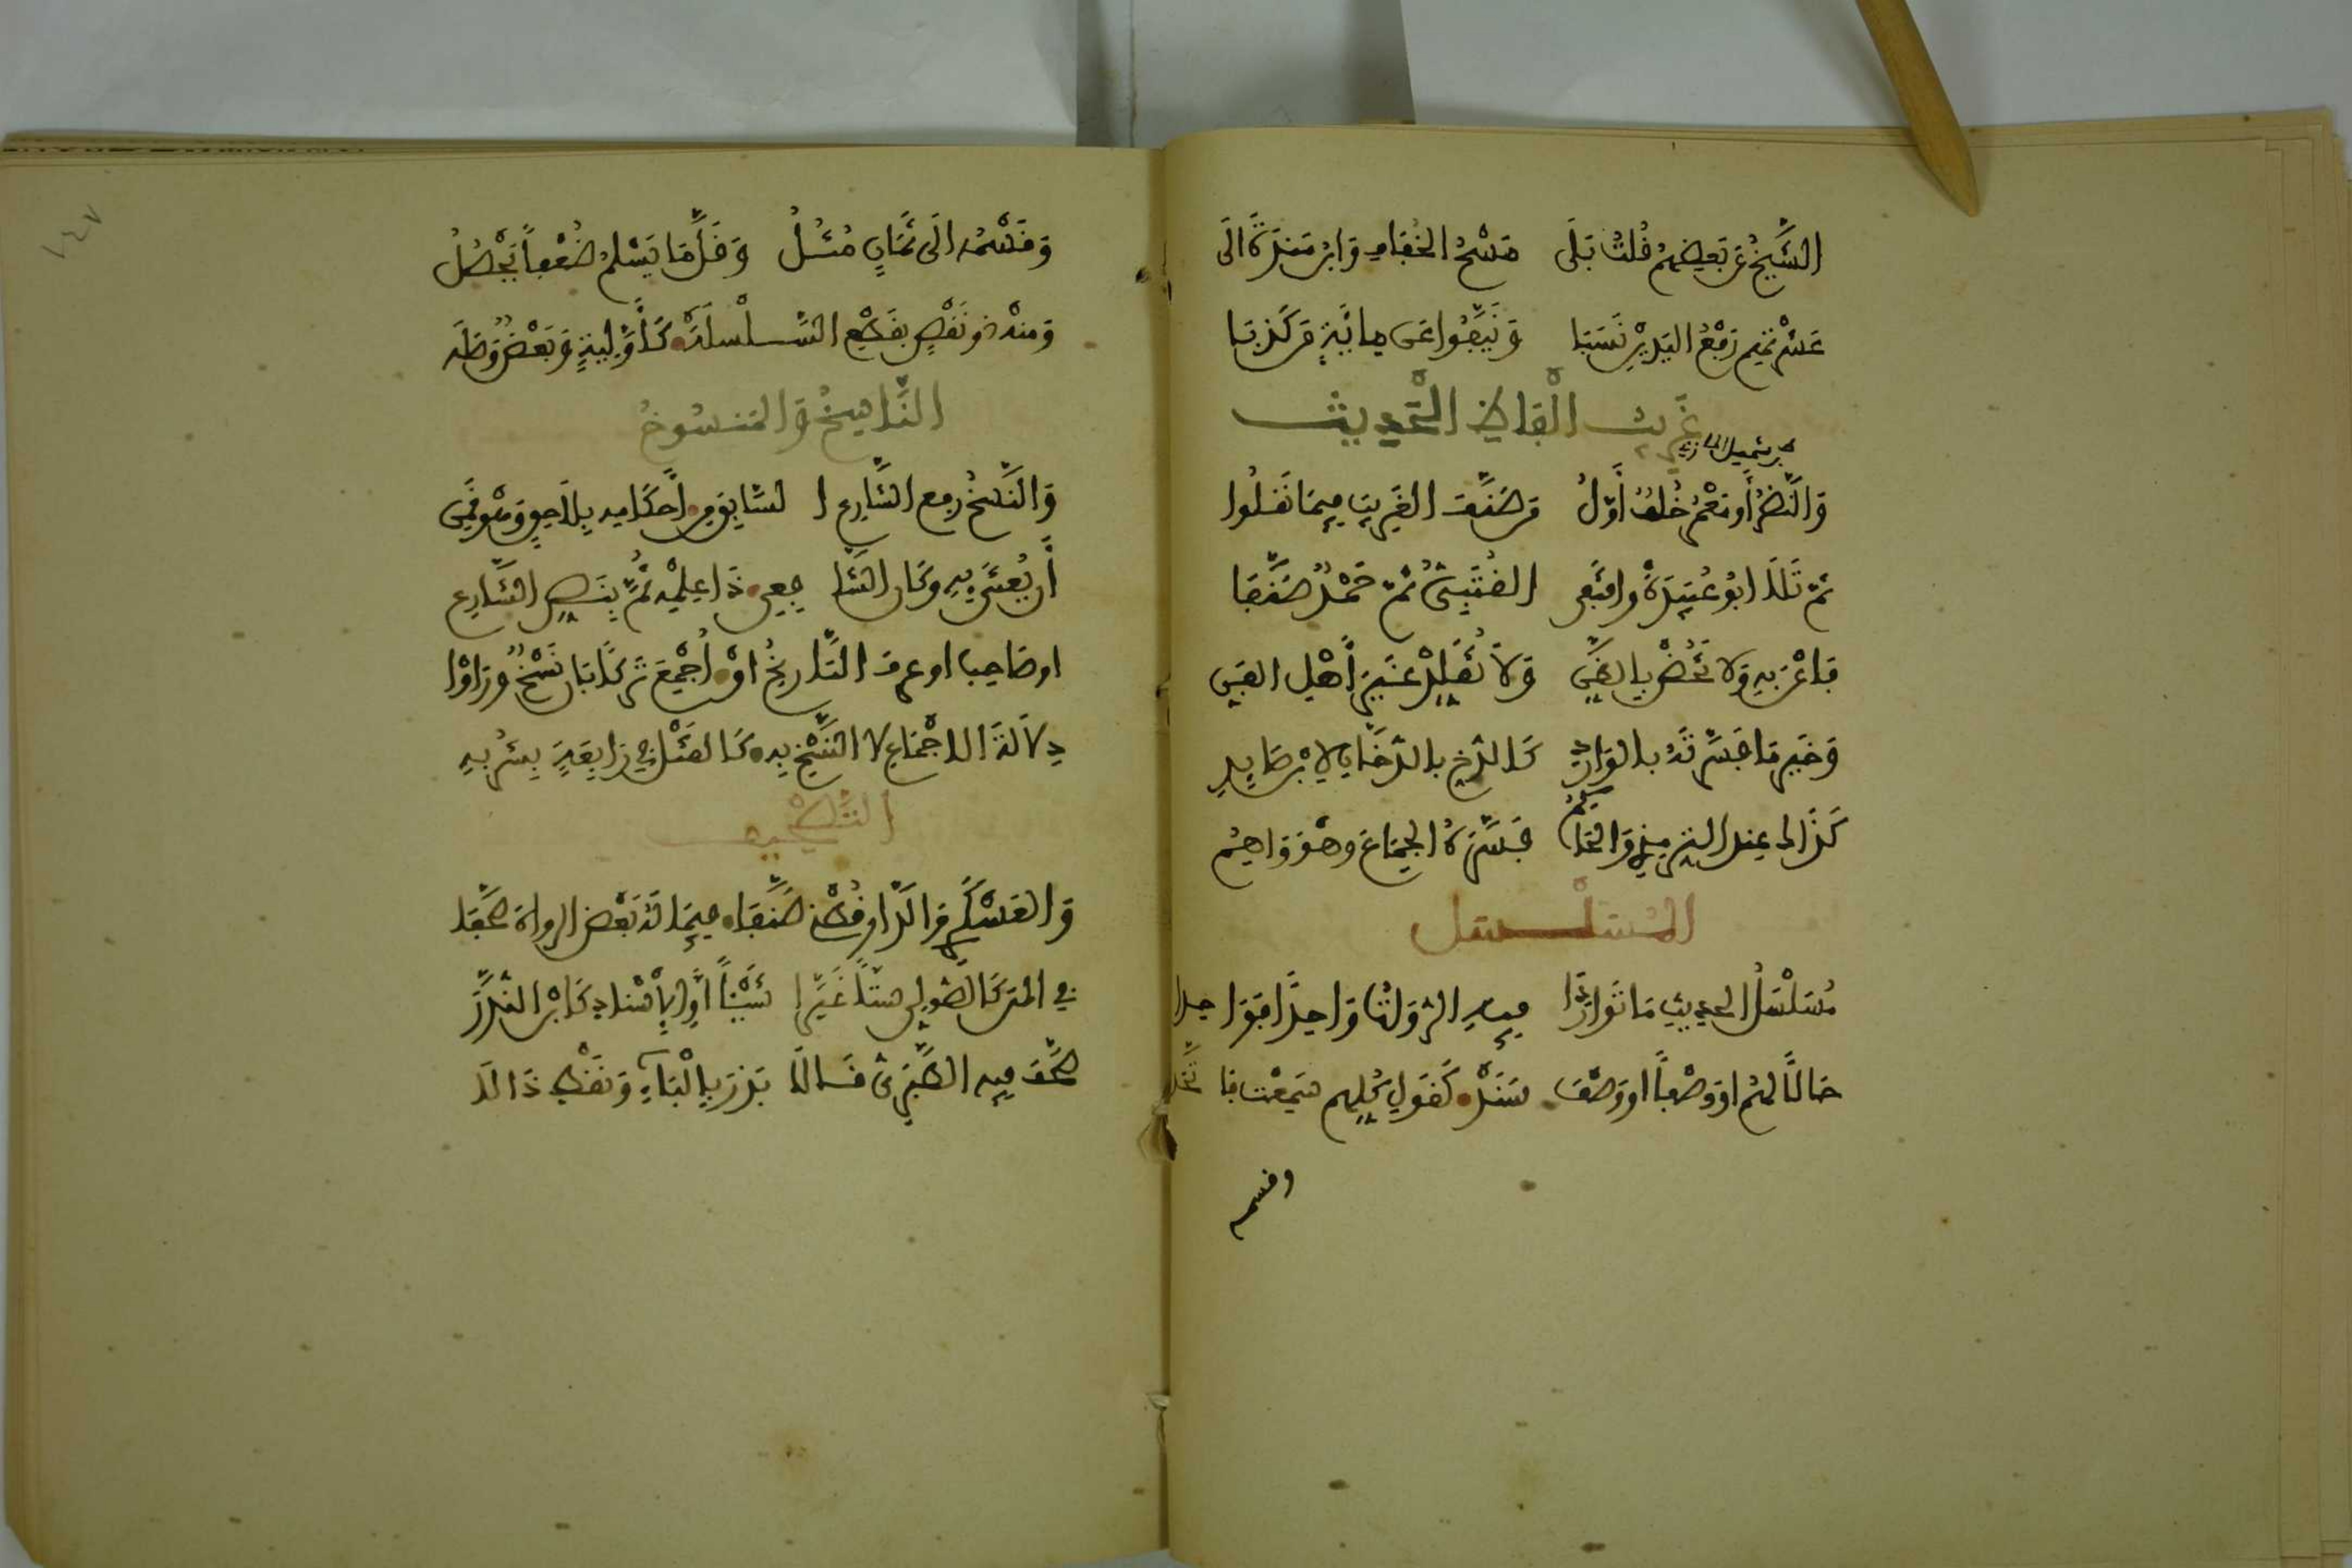 الشَّيْخُ عَنْ بَعْضِهِمْ قُلْتُ بَلَى مَسْحُ الْخُفَافِ وَابْنُ مَنْدَةَ إلَى
عَشْرتهم رَفْعُ الْيَدَيْنِ نَسَبَا وَنَيَّفُوا عَنْ مِائَةٍ مَنْ كَذَبَا
غَرِيبُ أَلْفَاظِ الْحَدِيثِ
ابن شميل المازني
وَالنَّضْرُ أَوْ مَعْمَرُ خُلْفٌ أَوَّلُ مَنْ صَنَّفَ الْغَرِيبَ فِيمَا نَقَلُوا
ثُمَّ تَلَا أَبُو عُبَيْدَةَ وَاقْتَفَى الْقُتَبِيُّ ثُمَّ حَمْدٌ صَنَّفَا
فَاعْنَ بِهِ وَلَا تَخُضْ بِالظَّنِّ وَلَا تُقَلِّدْ غَيْرَ أَهْلِ الْفَنِّ
وَخَيْرُ مَا فَسَّرْتَهُ بِالْوَارِدِ كَالدُّخِّ بِالدُّخَانِ لِابْنِ صَايِدِ
كَذَاكَ عِنْدَ التِّرْمِذِي وَالْحَاكِمُ فَسَّرَهُ الْجِمَاعَ وَهْوَ وَاهِمُ
الْمُسَلْسَلُ
مُسَلْسَلُ الْحَدِيثِ مَا تَوَارَدَا فِيهِ الرُّوَاةُ وَاحِدًا فَوَاحِدَا
حَالًا لَهُمْ أَوْ وَصْفًا أَوْ وَصْفَ سَنَدْ كَقَوْلِ كُلِّهِمْ سَمِعْتُ فَاتَّحَدْ
وقسمه
وَقَسْمُهُ إلَى ثَمَانٍ مُثُلُ وَقَلَّمَا يَسْلَمُ ضُعْفًا يَحْصُلُ
وَمِنْهُ ذُو نَقْصٍ بِقَطْعِ السِّلْسِلَهْ كَأَوَّلِيَّةٍ وَبَعْضٌ وَصَلَهْ
النَّاسِخُ وَالْمَنْسُوخُ
وَالنَّسْخُ رَفْعُ الشَّارِعِ السَّابِقَ مِنْ أَحْكَامِهِ بِلَاحِقٍ وَهْوَ قَمِنْ
أَنْ يُعْتَنَى بِهِ وَكَانَ الشَّافِعِي ذَا عِلْمِهِ ثُمَّ بِنَصِّ الشَّارِعِ
أَوْ صَاحِبٍ أَوْ عُرِفَ التَّارِيخُ أَوْ أُجْمِعَ تَرْكًا بَانَ نَسْخٌ وَرَأَوْا
دَلَالَةَ الْإِجْمَاعِ لَا النَّسْخَ بِهِ كَالْقَتْلِ فِي رَابِعَةٍ بِشُرْبِهِ
التَّصْحِيفُ
وَالْعَسْكَرِي وَالدَّارَقُطْنِي صَنَّفَا فِيمَا لَهُ بَعْضُ الرُّوَاةِ صَحَّفَا
فِي الْمَتْنِ كَالصُّولِيِّ سِتًّا غَيَّرَا شَيْئًا أَوِ الْإِسْنَادِ كَابْنِ النُّدَّرْ
صَحَّفَ فِيهِ الطَّبَرِيُّ قَالَا بَذَرْ بِالْبَاءِ وَنَقْطٍ ذَالَا